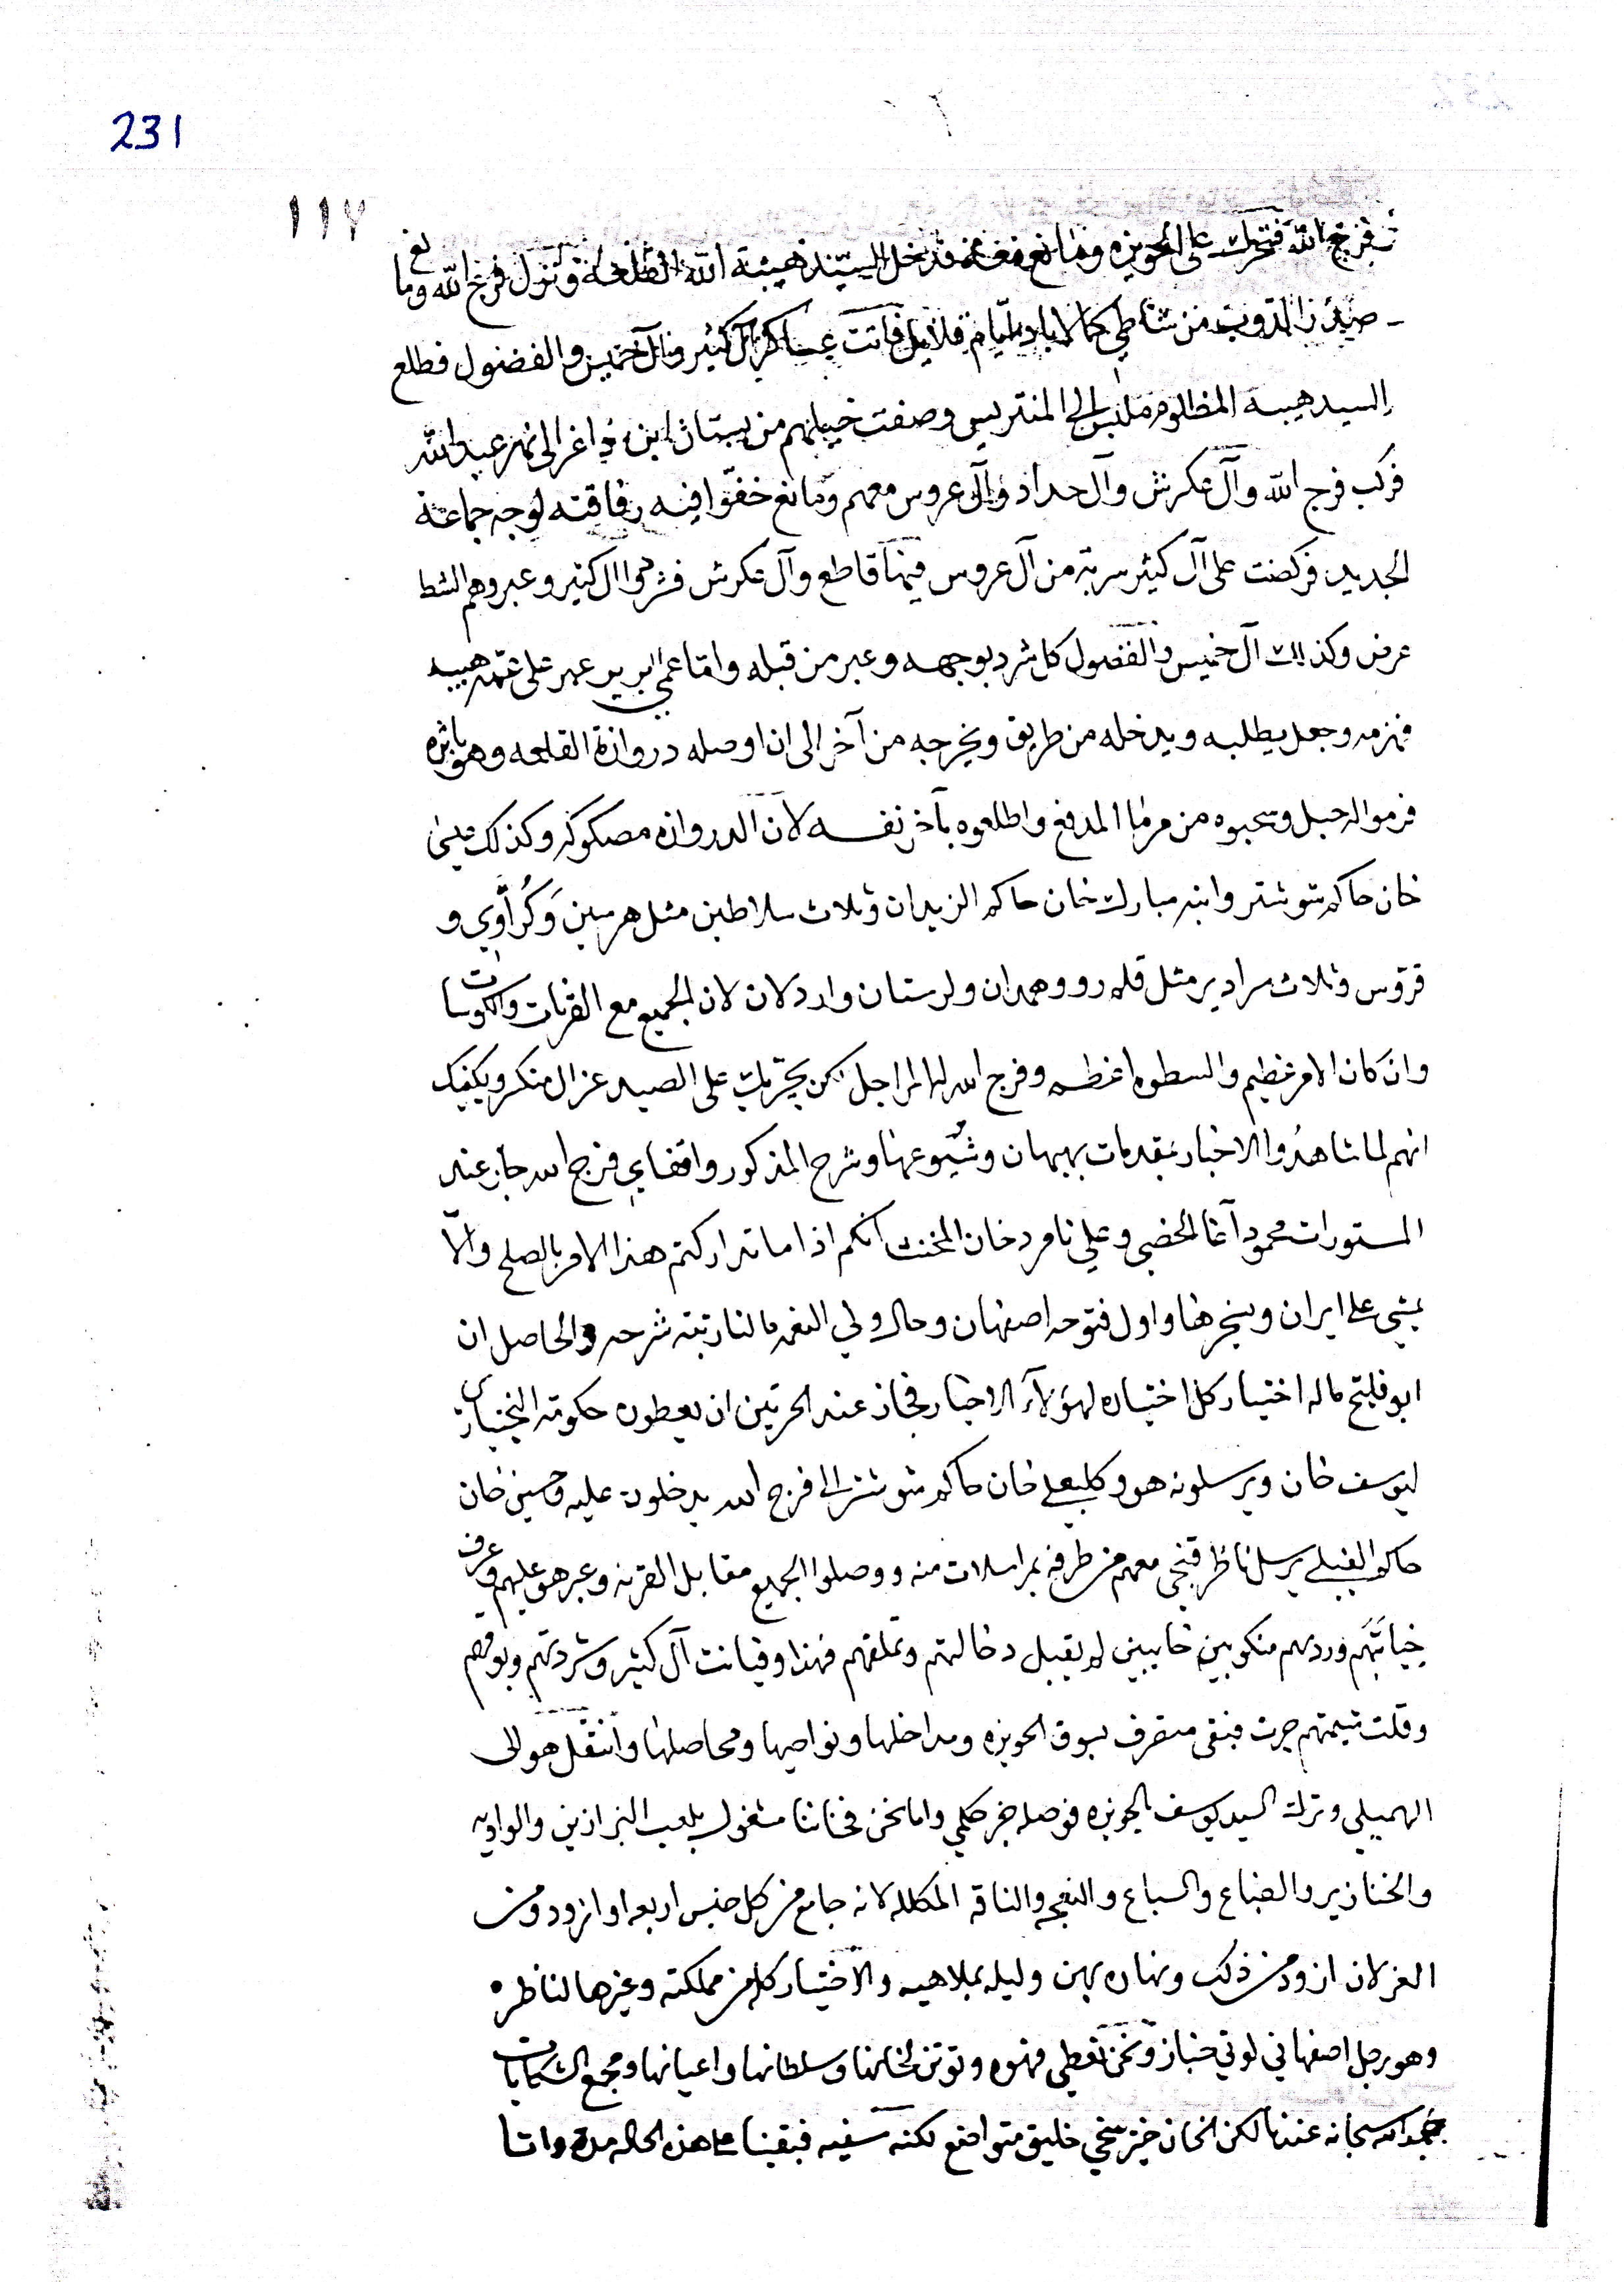 231
١١٧
فرج الله فتحرك على الحويزه ومانع معه فدخل السيد هيبة الله القلعة ونزل فرج الله ومانع
من شاطي ايام قلايل فاتت عساكر آل كثير وآل خميس والفضول فطلع
السيد هيبه المظلوم ملبس الى المنتريس وصفت خيلهم من بستان ابن داغر الى نهر عبد الله
فركب فرج الله وآل عكرش وآل حداد وآل عروس معهم ومانع خفوا فيه رفاقته لوجه جماعة
الجديد فركضت على آل كثير سربة من آل عروس فيها قاطع وآل عكرش فشرموا آل كثير وعبروهم الشط
عرض وكذالك آل خميس والفضول كل شرد بوجهه وعبر من قبله واما عمي البرير عهر على عمه هيبه
فهزمه وجعل يطلبه ويدخله من طريق ويخرجه من آخر الى ان اوصله دروازة القلعه وهو باثره
فرموا له حبل وسحبوه من مرما المدفع واطلعوه بآخر نفسه لان الدروازه مصكوكه وكذلك
خان حاكم شوشتر وابنه مبارك خان حاكم الزيدان وثلاث سلاطين مثل هرسين وكراوي و
قروس وثلاث سرادير مثل قلمرو وهمدان ولرستان واردلان لان الجميع مع القربات والكوسات
وان كان الامر عظيم والسطوه اعظم وفرج الله لها المراجل لكن يحريك على الصيد غزال منكر ويكفيك
انهم لما شاهدوا الاخبار بمقدمات بهبهان وشيوعها وشرح المذكور واقفاي فرج الله جاز عند
المستورات محمود آغا الخصي وعلي نامرد خان المخنث انكم اذا ما تداركتم هذا الامر بالصلح والّا
يمشي على ايران ويسخرها واول فتوحه اصفهان وحال ولي النعمه مالنا رتبة شرحه والحاصل ان
ابو فليتح ماله اختيار كل اختياره لهؤلاء الاخيار فجاز عند الحرتين ان يعطون حكومة البختيارى
ليوسف خان ويرسلونه هو وكلبعلي خان حاكم شوشتر الى فرج الله يدخلون عليه وحسين خان
حاكم الفيلي يرسل ناظر قبجي معهم من طرفه بمراسلات منه ووصلوا الجميع مقابل القرنه وعبر هو عليهم وعرف
خيانتهم وردهم منكوبين خايبين لم يقبل دخالتهم وتملقهم فهذا وخيانت آل كثير وشردتهم وبوقهم
وقلت شيمتهم جرت فبقى متصرف بسوق الحويزه ومداخلها ونواصيها ومحاصلها وانتقل هو الى
الهميلي وترك السيد يوسف بالحويزه فوصله خبر حكمي واما نحن فخاننا مشغول بلعب البزازين والواويه
والخنازير والضباع والسباع والنعجه والناقه المكلله لانه جامع من كل جنس اربعه او ازود ومن
الغزلان ازود من ذلك ونهاره بهن وليله بملاهيه والاختيار كله من مملكته وغيرها لناظره
وهو رجل اصفهاني لوتي خباز ونحن نعطي قهوه وتوتن لخانها وسلطانها واعيانها ومجمع الشكايات
بحمد الله سبحانه عندنا لكن الخان خير سخي خليق متواضع لكنه سفيه فبقينا على هذه الحاله مدة واتا